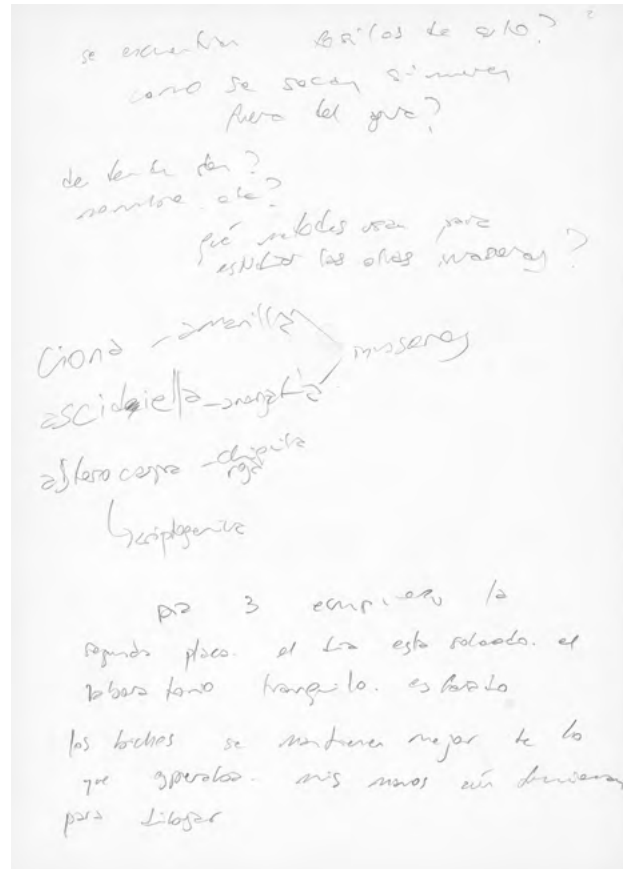 se encuentran fosiles de esto?
como se secan si mueren
fuera del agua?
de donde son?
nombre. etc?
qué metodos usan para
estudiar las otras invasoras?
Ciona - amarilla
invasoras
ascidiella - anaranjada
asterocarpa - chiquita
roja
criptogenica
Dia 3 empiezo la
segunda placa. el dia esta soleado. el
laboratorio tranquilo.
los bichos se mantienen mejor de lo
que esperaba. mis manos aún
para dibujar